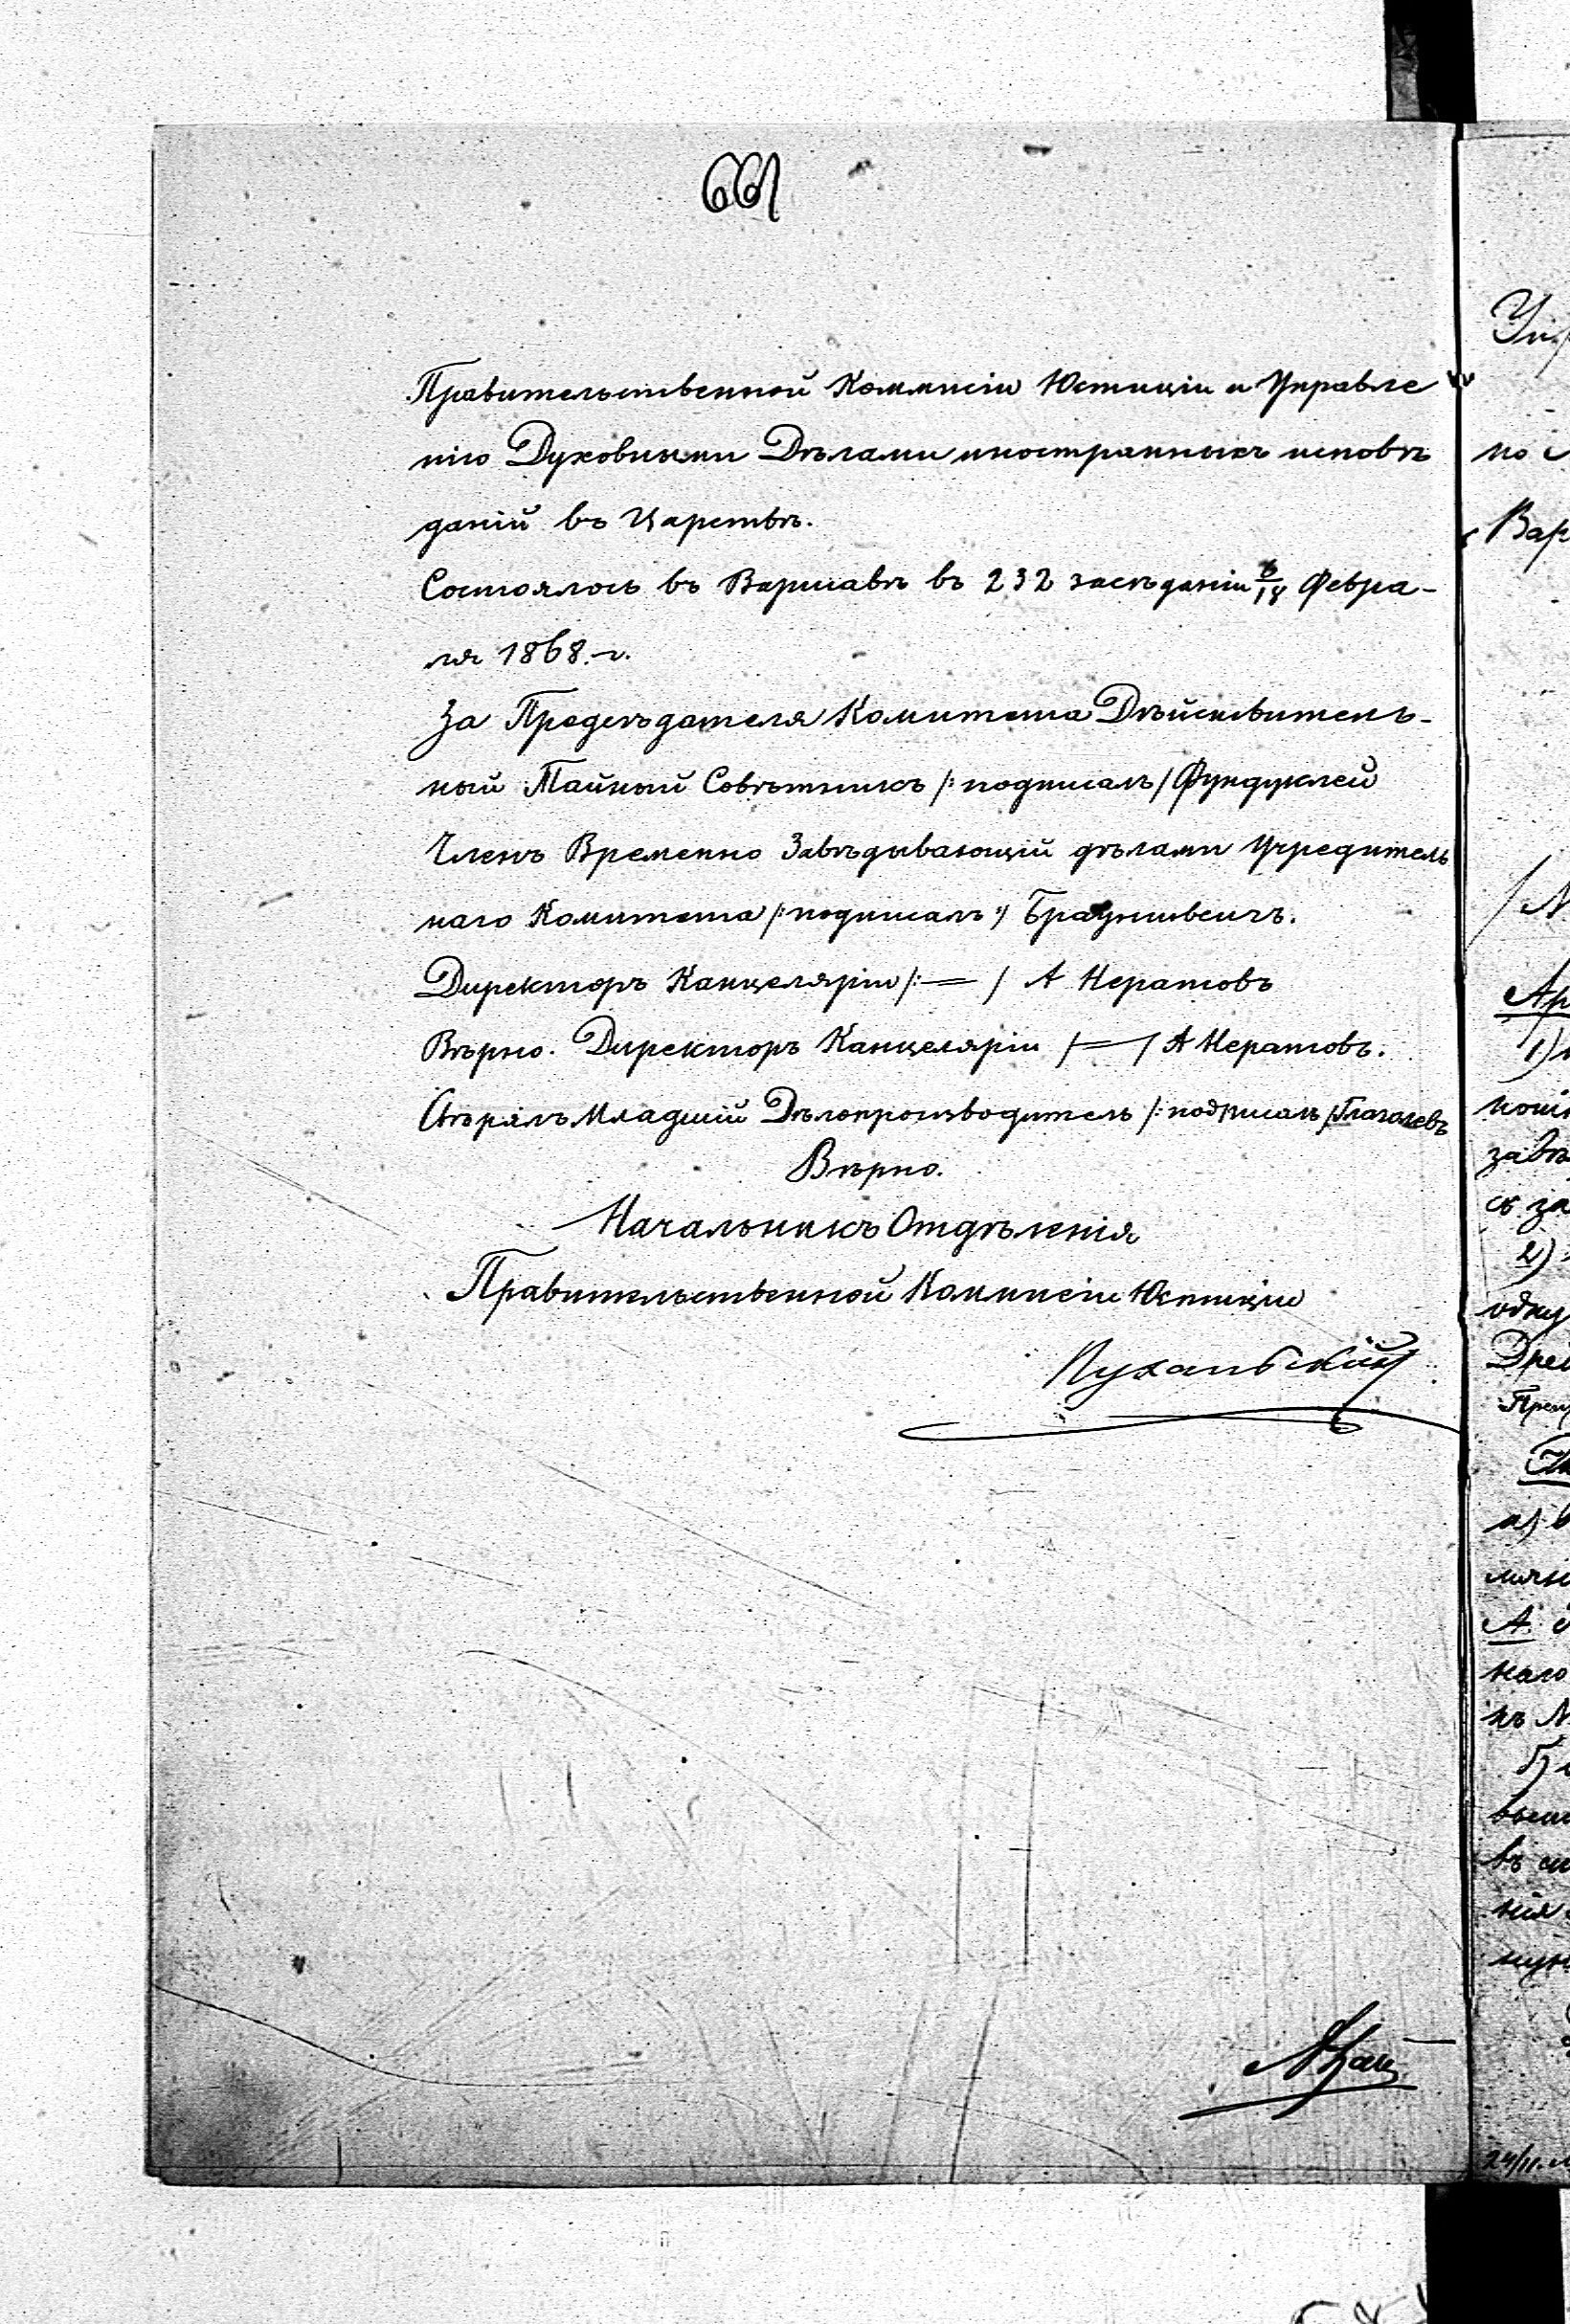 661
Правительственной Коммисіи Юстиціи и Управле
нію Духовными Дѣлами иностранныхъ исповѣ
даній въ Царствѣ.
Состоялось въ Варшавѣ въ 232 засѣданіи 6/18 Февра-
ля 1868 г.
За Предсѣдателя Комитета Дѣйствитель-
ный Тайный Совѣтникъ /: подписалъ / Фундуклей
Членъ Временно Завѣдывающій дѣлами Учредитель
наго Комитета /: подписалъ :/ Брауншвейгъ.
Директоръ Канцеляріи /: = / А Нератовъ
Вѣрно. Директоръ Канцеляріи / = / А Нератовъ.
Свѣрялъ Младшій Дѣлопроизводитель /: подписалъ / Глаголевъ
Вѣрно.
Начальникъ Отдѣленія
Правительственной Коммисіи Юстиціи
по
Вар
Ар
1)
завѣ
съ за
2)
одну
а) в
А
наго
къ
б)
въ
нія